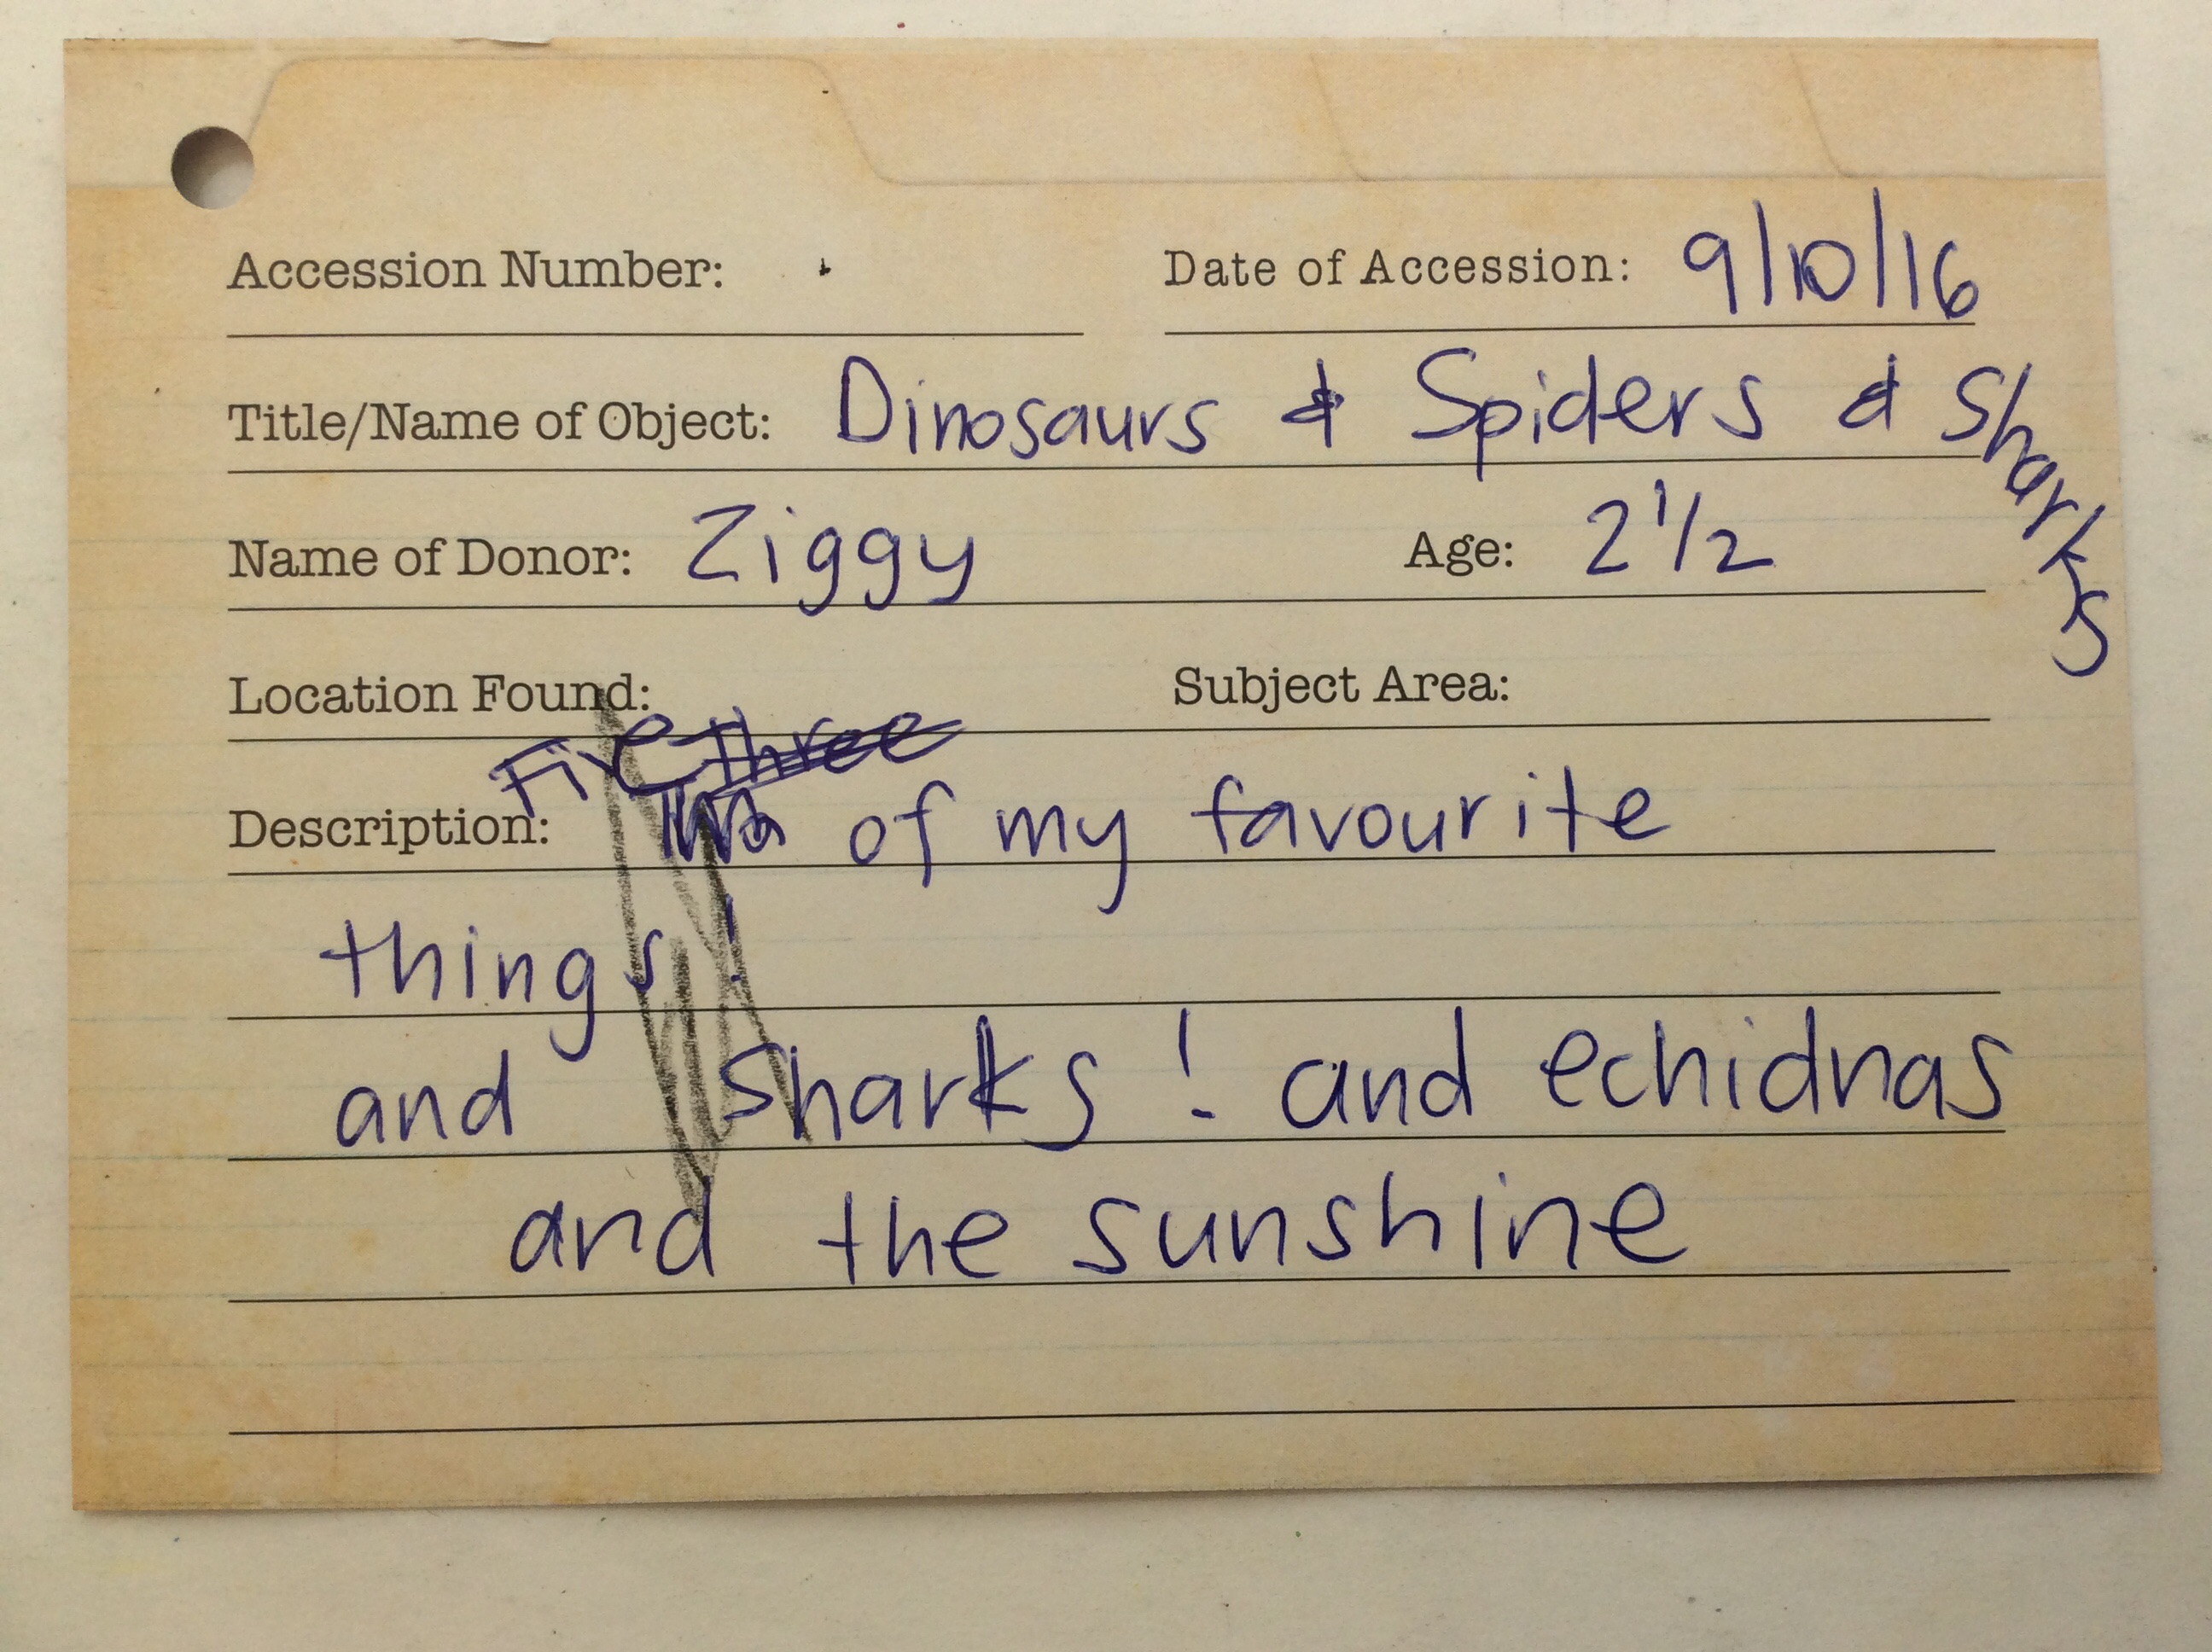 Accession Number: Date of Accession: 9/10/16
Title/Name of Object: Dinosaurs & Spiders & Sharks
Name of Donor: Ziggy Age: 2 1/2
Location Found: Subject Area:
Five Three
Description: Two of my favourite
things!
and Sharks! and echidnas
and the sunshine